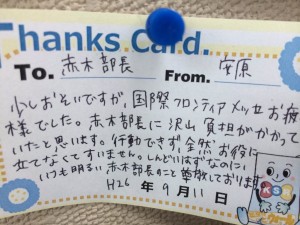 Thanks Card.
To. 赤木部長 From. 安原
少しおそいですが、国際フロンティアメッセお疲
様でした。赤木部長に沢山負担がかかって
いたと思います。行動できず全然お役に
立てなくてすいません。しんどいはずなのに
いつも明るい赤木部長のこと尊敬しております。
H26 年 9月11日
KSG